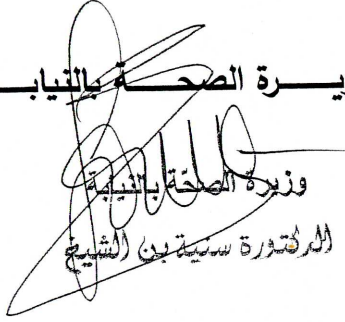 يـــرة الصحـــة بالنيابـــ
وزيرة الصحّة بالنيابة
الدكتورة سنية بن الشيخ